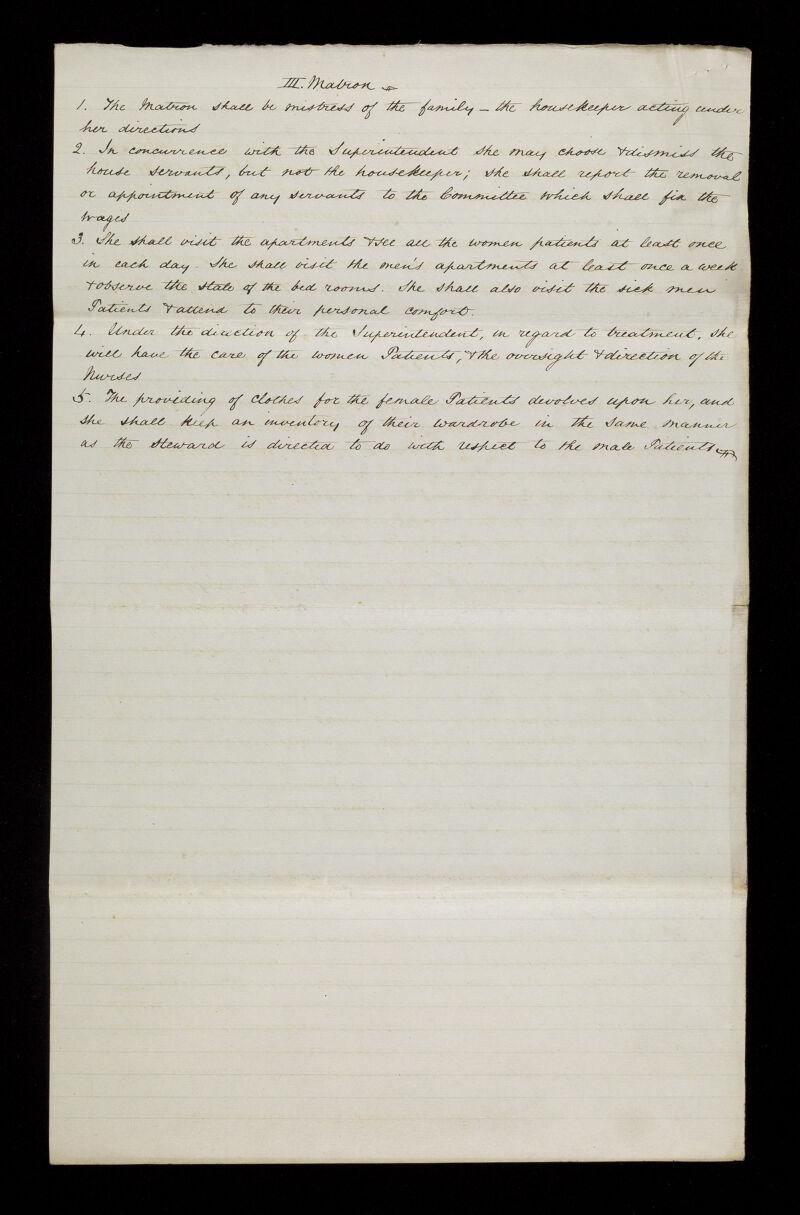 III. Matron
1. The Matron shall be mistress of the family – the housekeeper acting under
her directions
2. In concurrence with the Superintendent she may choose & dismiss the
house servants, but not the housekeeper; she shall report the removal
or appointment of any servants to the Committee which shall fix the
wages
3. She shall visit the apartments & see all the women patients at least once
in each day. She shall visit the men's apartments at least once a week
& observe the state of the bed rooms. She shall also visit the sick men
Patients & attend to their personal comfort.
4. Under the direction of the Superintendent, in regard to treatment, she
will have the care of the women Patients, & the oversight & direction of the
Nurses
5. The providing of clothes for the female Patients devolves upon her, and
she shall keep an inventory of their wardrobe in the same manner
as the steward is directed to do with respect to the male Patients